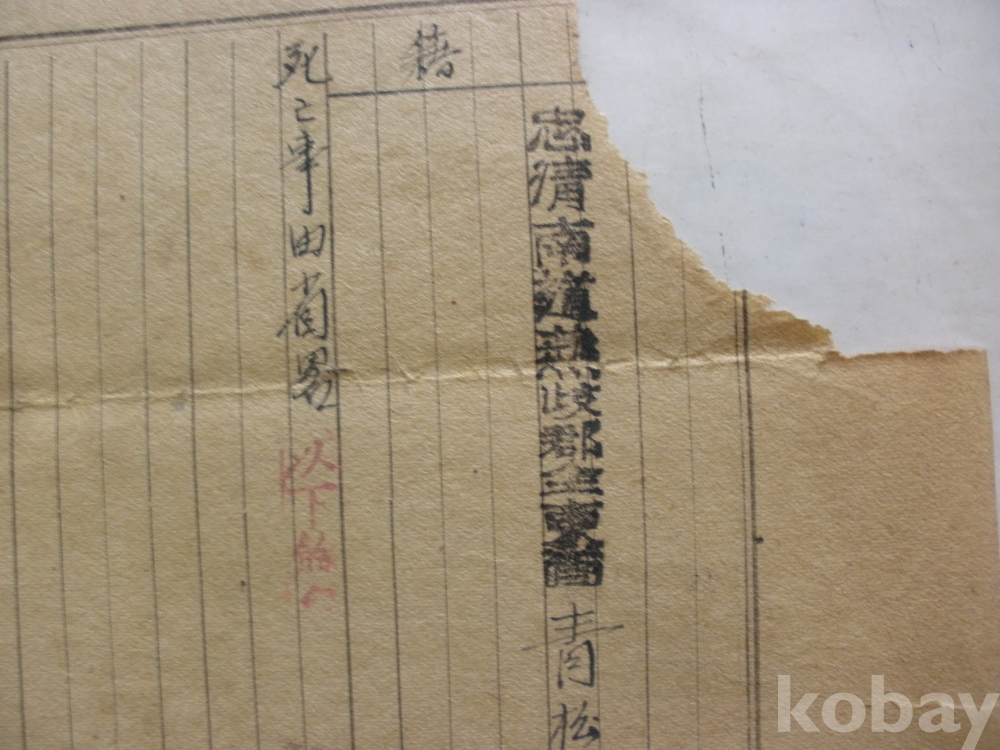 忠清南道燕岐郡全東面青松
籍
死亡事由省畧 以下
kobay